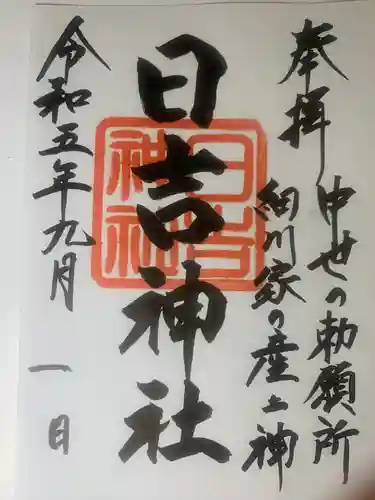 奉拝
中世の勅願所
細川家の産土神
日吉神社
日吉神社
令和五年九月一日